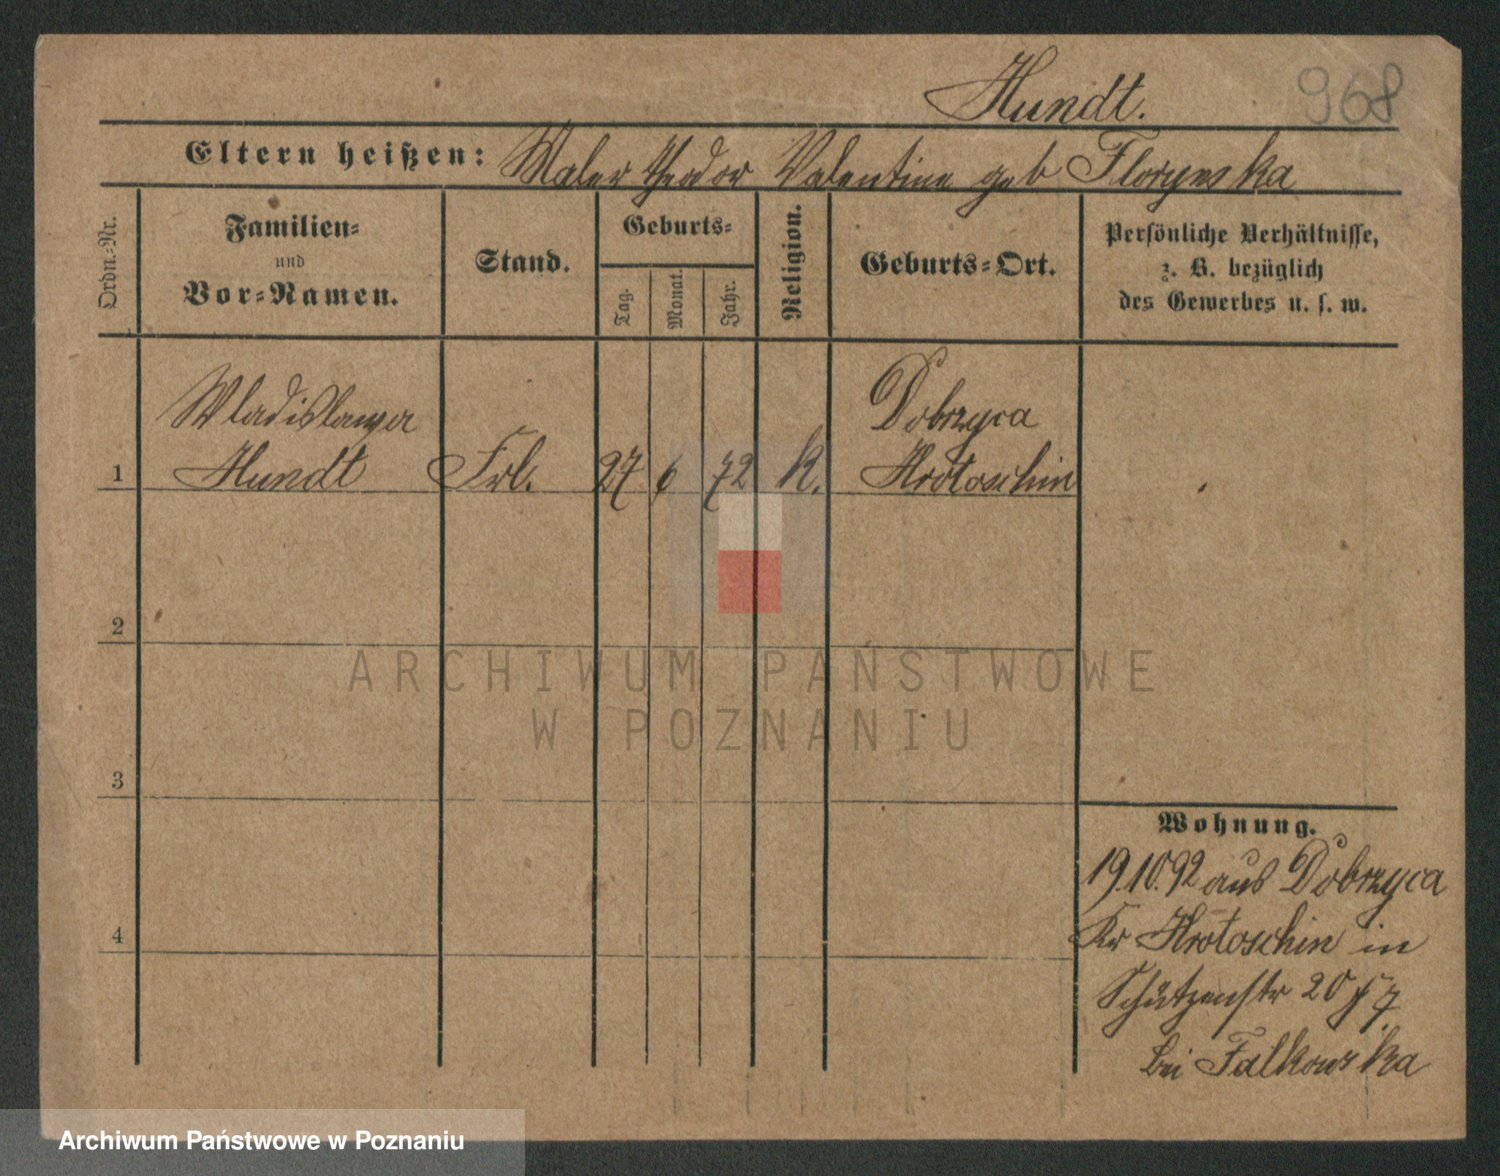 Hundt.
968
Eltern heißen: Maler Theodor Valentine geb Florynska
Ordn.-Nr.
Familien-
und
Vor-Namen.
Stand.
Geburts-
Tag.
Monat.
Jahr.
Religion.
Geburts-Ort.
Persönliche Verhältnisse,
z. B. bezüglich
des Gewerbes u. s. w.
Wladislawa Dobrzyca
1 Hundt Frl. 27 6 72 K. Krotoschin
2
ARCHIWUM PAŃSTWOWE
W POZNANIU
3
Wohnung.
19.10.92 aus Dobrzyca
4
Kr Krotoschin in
Schützenstr 20
bei Falkowska
Archiwum Państwowe w Poznaniu